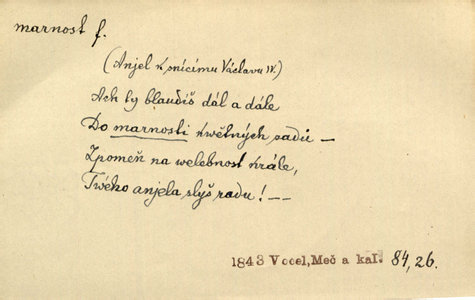 marnost f.
(Anjel k snícímu Václavu IV.)
Ach ty blaudíš dál a dále
Do marnosti kwětných sadů —
Zpomeň na welebnost krále,
Twého anjela slyš radu! — —
1843 Vocel, Meč a kal. 84, 26.